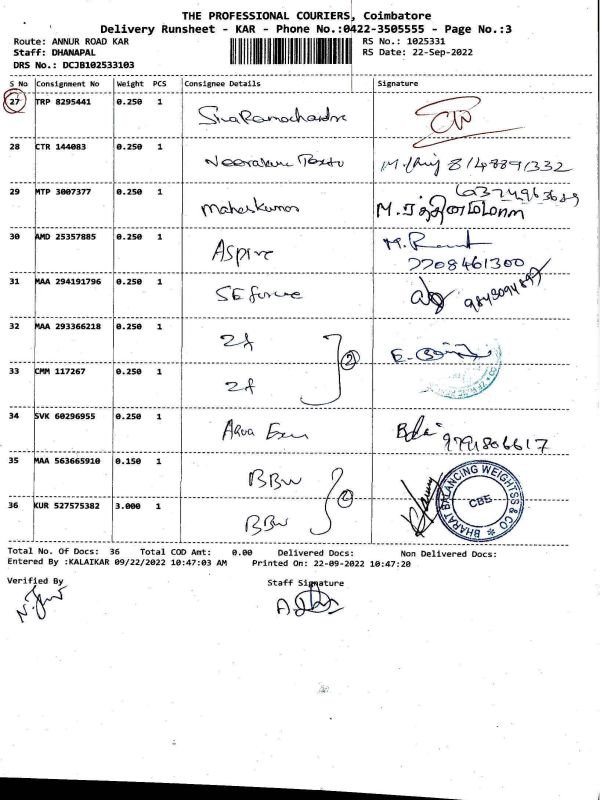 THE PROFESSIONAL COURIERS, Coimbatore
Delivery Runsheet - KAR - Phone No.:0422-3505555 - Page No.:3
Route: ANNUR ROAD KAR RS No.: 1025331
Staff: DHANAPAL RS Date: 22-Sep-2022
DRS No.: DCJB102533103
S No Consignment No Weight PCS Consignee Details Signature
27 TRP 8295441 0.250 1
SivaRamachandra
28 CTR 144083 0.250 1
8148891332
29 MTP 3007377 0.250 1
MahesKumar M. ரத்தினம்மாள்
30 AMD 25357885 0.250 1
Aspire
7708461300
31 MAA 294191796 0.250 1
SE force
32 MAA 293366218 0.250 1
2f
2
33 CMM 117267 0.250 1
2f
34 SVK 60296955 0.250 1
Aqua
9791806617
35 MAA 563665910 0.150 1
BBW
BHARAT BALANCING WEIGHTSS & CO
CBE
36 KUR 527575382 3.000 1
BBW
Total No. Of Docs: 36 Total COD Amt: 0.00 Delivered Docs: Non Delivered Docs:
Entered By :KALAIKAR 09/22/2022 10:47:03 AM Printed On: 22-09-2022 10:47:20
Verified By Staff Signature